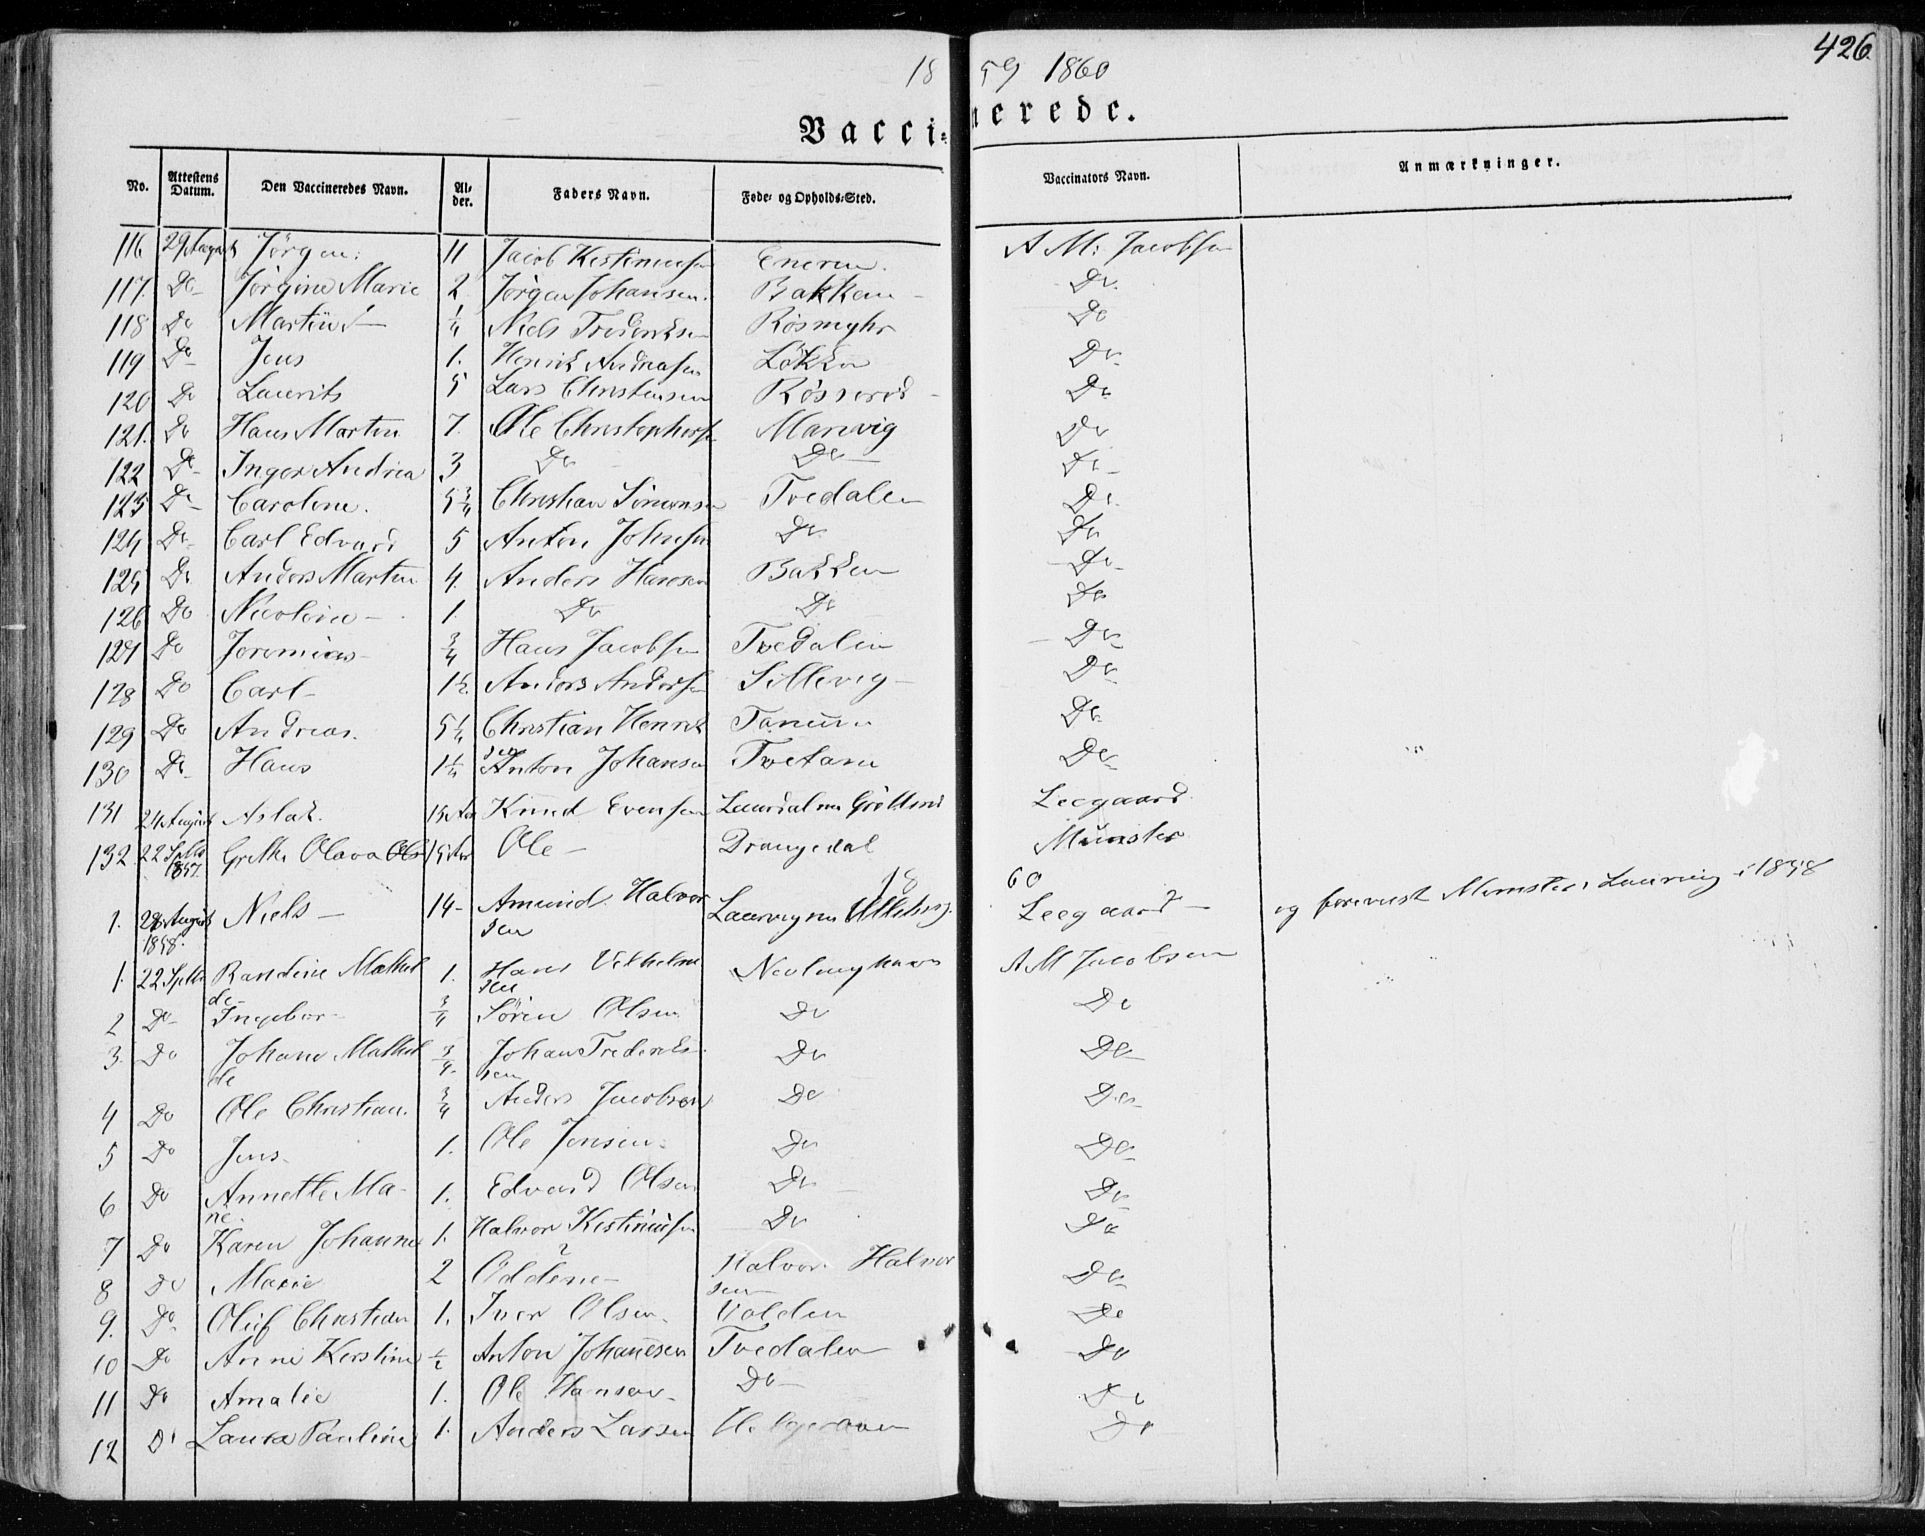 426.
1859 1860
Vaccinerede.
No. Attestens Datum. Den Vaccineredes Navn. Alder. Faders Navn. Føde- og Opholds-Sted. Vaccinators Navn. Anmærkninger.
116 29 August Jörgen 11 Jacob Kestinusen A M: Jacobsen
117. Do Jörgine Marie 2 Jörgen Johansen. Bakken Do
118 Do 1/4 Niels Frederiksen Røsmyhr Do
119 Do Jens 1. Henrik Andreasen Løkken Do
120 Do Laurits 5 Lars Christensen Do
121. Do Hans Martin 7. Ole Christophersen Manvig Do
122 Do Inger Andrea 3 Do Do Do
123 Do Caroline. 5 3/4 Christian Simonsen Tvedalen Do
124 Do Carl Edvard 5 Anton Johnsen Do Do
125 Do Anders Martin 4. Anders Hansen Bakken Do
126 Do Nicoline 1. Do Do Do
127 Do Jeremias 3/4 Hans Jacobsen Tvedalen Do
128 Do Carl 1 1/2 Anders Andersen Sillevig Do
129 Do Andreas. 5 1/4 Christian Henrik Tanum Do
sen
130 Do Hans 1 1/4 Anton Johansen Tvetane Do
131 24 August Aslak. 15 Aar Knud Evensen Leegaard
132 22 Septbr Grethe Olava Ols 15 Aar Ole Drangedal Munster
1857.
18 60
1. 28 August Niels 14 Amund Halvor Leegaard og forevist Munster i Laurvig i 1858
1858. sen
1. 22 Septbr Randine Mathil 1. Hans Vilhelm Nevlunghavn A M Jacobsen
de sen
2 Do Ingebor 3/4 Sörin Olsen Do Do
3. Do Johane Mathil 3/4 Johan Frederik Do Do
de sen
4 Do Ole Christian. 3/4 Anders Jacobsen Do Do
5 Do Jens 1. Ole Jensen Do Do
6 Do Annette Ma 1. Edvard Olsen Do Do
7 Do Karen Johanne 1. Halvor Kestinusen Do Do
8 Do Marie 2 Oddene Halvor Halvor Do
sen
9. Do Oluf Christian 1. Iver Olsen Volden Do
10 Do Anne Kerstine 1/2 Anton Johannesen Tvedalen Do
11 Do Amalie 1. Ole Hansen Do Do
12 Do Laura Pauline 1. Anders Larsen Helgeroaen Do